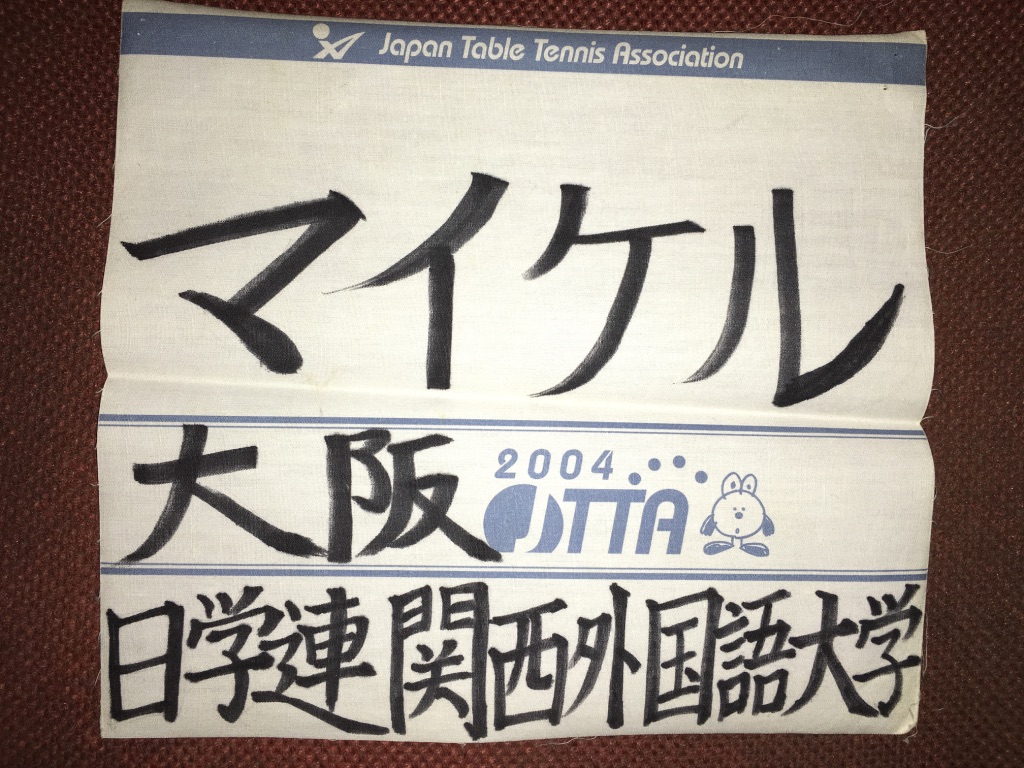 Japan Table Tennis Association
マイケル
大阪 2004 JTTA
日学連 関西外国語大学